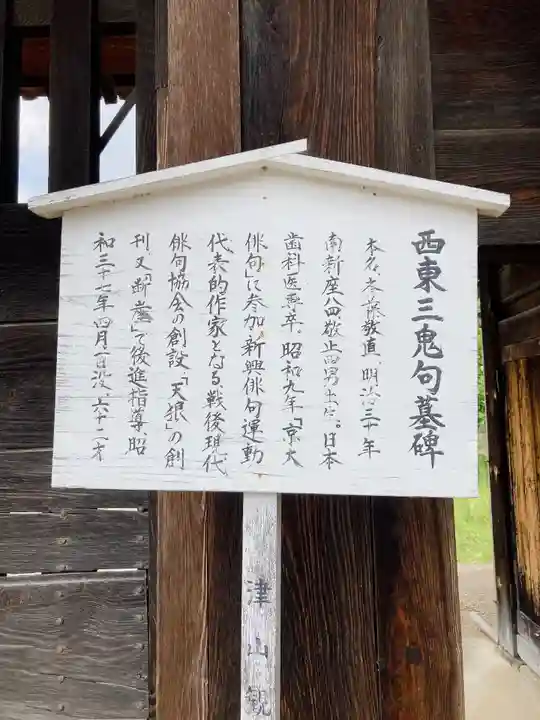 西東三鬼句墓碑
本名、斎藤敬直、明治三十年
南新座八四敬止四男生る。日本
歯科医専卒、昭和九年「京大
俳句」に参加、新興俳句運動
代表的作家となる戦後現代
俳句協会の創設、「天狼」の創
刊又「断崖」で後進指導、昭
和三十七年四月一日没、六十二才
津山観